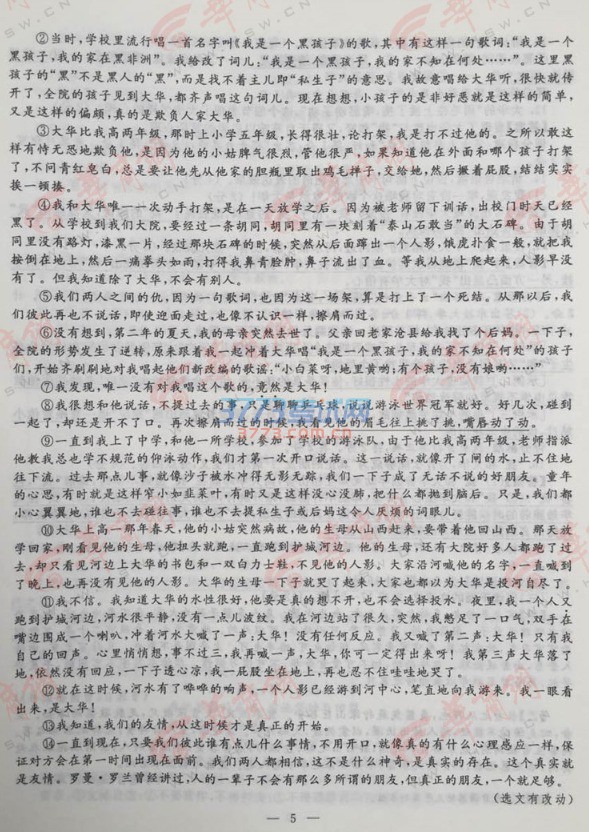 ②当时，学校里流行唱一首名字叫《我是一个黑孩子》的歌，其中有这样一句歌词：“我是一个
黑孩子，我的家在黑非洲”。我给改了词儿：“我是一个黑孩子，我的家不知在何处……”。这里黑
孩子的“黑”不是黑人的“黑”，而是找不着主儿即“私生子”的意思。我故意唱给大华听，很快就传
开了，全院的孩子见到大华，都齐声唱这句词儿。现在想想，小孩子的是非好恶就是这样的简单，
又是这样的偏颇，真的是欺负人家大华。
③大华比我高两年级，那时上小学五年级，长得很壮，论打架，我是打不过他的。之所以敢这
样有恃无恐地欺负他，是因为他的小姑脾气很烈，管他很严，如果知道他在外面和哪个孩子打架
了，不问青红皂白，总是要让他先从他家的胆瓶里取出鸡毛掸子，交给她，然后撅着屁股，结结实实
挨一顿揍。
④我和大华唯一一次动手打架，是在一天放学之后。因为被老师留下训话，出校门时天已经
黑了。从学校到我们大院，要经过一条胡同，胡同里有一块刻着“泰山石敢当”的大石碑。由于胡
同里没有路灯，漆黑一片，经过那块石碑的时候，突然从后面蹿出一个人影，饿虎扑食一般，就把我
按倒在地上，然后一痛拳头如雨，打得我鼻青脸肿，鼻子流出了血。等我从地上爬起来，人影早没
有了。但我知道除了大华，不会有别人。
⑤我们两人之间的仇，因为一句歌词，也因为这一场架，算是打上了一个死结。从那以后，我
们彼此再也不说话，即使迎面走过，也像不认识一样，擦肩而过。
⑥没有想到，第二年的夏天，我的母亲突然去世了。父亲回老家沧县给我找了个后妈。一下子，
全院的形势发生了逆转，原来跟着我一起冲着大华唱“我是一个黑孩子，我的家不知在何处”的孩子
们，开始齐刷刷地对我唱起他们新改编的歌谣：“小白菜呀，地里黄哟；有个孩子，没有娘哟……”
⑦我发现，唯一没有对我唱这个歌的，竟然是大华！
⑧我很想和他说话，不提过去的事，只是聊聊乒乓球，说说游泳世界冠军就好。好几次，碰到
一起了，却还是开不了口。再次擦肩而过的时候，我看见他的眉毛往上挑了挑，嘴唇动了动。
⑨一直到我上了中学，和他一所学校，参加了学校的游泳队，由于他比我高两年级，老师指派
他教我总也学不规范的仰泳动作，我们才第一次开口说话。这一说话，就像开了闸的水，止不住地
往下流。过去那点儿事，就像沙子被水冲得无影无踪，我们一下子成了无话不说的好朋友。童年
的心思，有时就是这样窄小如韭菜叶，有时又是这样没心没肺，把什么都抛到脑后。只是，我们都
小心翼翼地，谁也不去碰往事，谁也不去提私生子或后妈这令人厌烦的词眼儿。
⑩大华上高一那年春天，他的小姑突然病故，他的生母从山西赶来，要带着他回山西。那天放
学回家，刚看见他的生母，他扭头就跑，一直跑到护城河边。他的生母，还有大院好多人都跑了过
去，却只看见河边上大华的书包和一双白力士鞋，不见他的人影。大家沿河喊他的名字，一直喊到
了晚上，也再没有见他的人影。大华的生母一下子就哭了起来，大家也都以为大华是投河自尽了。
⑪我不信。我知道大华的水性很好，他要是真的想不开，也不会选择投水。夜里，我一个人又
跑到护城河边，河水很平静，没有一点儿波纹。我在河边站了很久，突然，我憋足了一口气，双手在
嘴边围成一个喇叭，冲着河水大喊了一声：大华！没有任何反应。我又喊了第二声：大华！只有我
自己的回声。心里悄悄想，事不过三，我再喊一声，大华，你可一定得出来呀！我第三声大华落了
地，依然没有回应，一下子透心凉，我一屁股坐在地上，再也忍不住哇哇地哭了。
⑫就在这时候，河水有了哗哗的响声，一个人影已经游到河中心，笔直地向我游来。我一眼看
出来，是大华！
⑬我知道，我们的友情，从这时候才是真正的开始。
⑭一直到现在，只要我们彼此谁有点儿什么事情，不用开口，就像真的有什么心理感应一样，保
证对方会在第一时间出现在面前。我们两人都相信，这不是什么神奇，是真实的存在。这个真实就
是友情。罗曼·罗兰曾经讲过，人的一辈子不会有那么多所谓的朋友，但真正的朋友，一个就足够。
（选文有改动）
— 5 —
3773考试网
3773.com